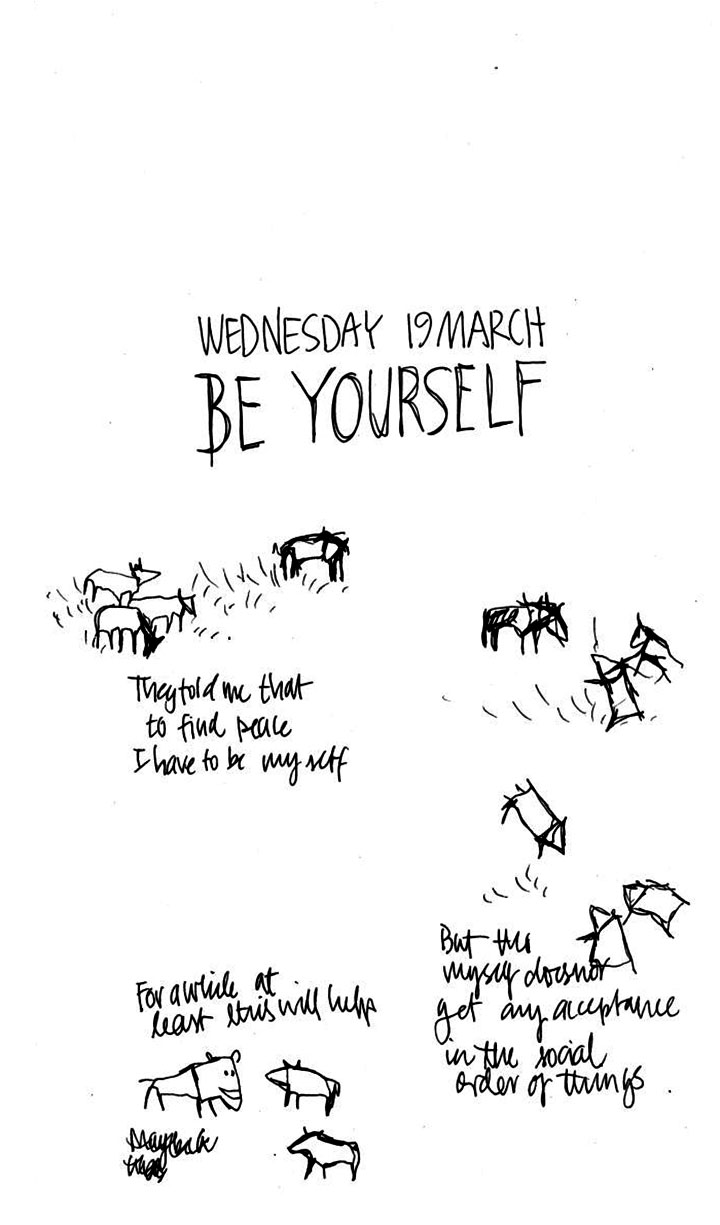 WEDNESDAY 19 MARCH
BE YOURSELF
They told me that
to find peace
I have to be my self
But this
myself does not
get any acceptance
in the social
order of things
For a while at
least this will help